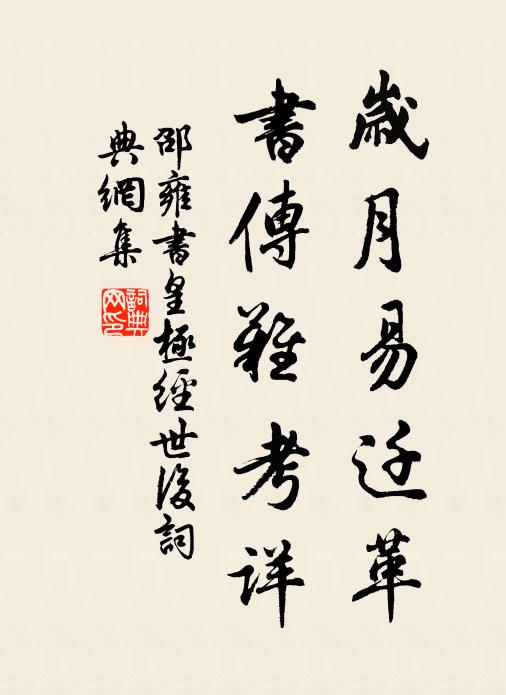 歲月易迁革
書傳難考详
邵雍書皇極經世後詞
典網集
詞典网印